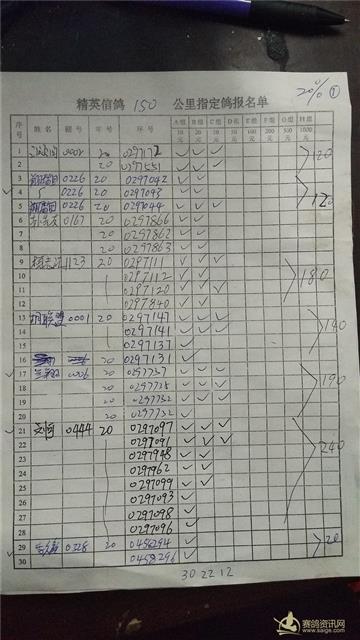 20% ①
精英信鸽 150 公里指定鸽报名单
序号 姓名 棚号 年号 环号 A组 10元 B组 20元 C组 30元 D组 50元 E组 100元 F组 200元 G组 500元 H组 1000元
1 0002 20 0297172 ✓ ✓ 120
2 20 0297551 ✓ ✓ ✓
3 0226 20 0297042 ✓ ✓
4 0226 20 0297093 ✓ ✓ 120
5 0226 20 0297044 ✓ ✓ ✓
6 0167 20 0297866
7 20 0297862
8 20 0297863
9 1123 20 0297111 ✓ ✓ ✓
10 0297112 ✓ ✓ 180
11 0297120 ✓ ✓ ✓
12 0297840 ✓ ✓
13 胡联盟 0001 20 0297147 ✓ ✓ ✓
14 0297141 ✓ ✓ ✓ 140
15 0297137 ✓
16 20 0297131 ✓
17 006 20 0297737 ✓ ✓ ✓
18 20 0297735 ✓ ✓ ✓ 190
19 20 0297752 ✓ ✓ ✓
20 20 0297732 ✓
21 0444 20 0297097 ✓ ✓ ✓
22 0297091 ✓ ✓ ✓ 240
23 0297948 ✓ ✓
24 0297962 ✓ ✓
25 0297099 ✓ ✓
26 0297093 ✓
27 0297098 ✓
28 0297096 ✓
29 0328 20 0458294 ✓ 20
30 0458296 ✓
30 22 12
赛鸽资讯网
www.saige.com